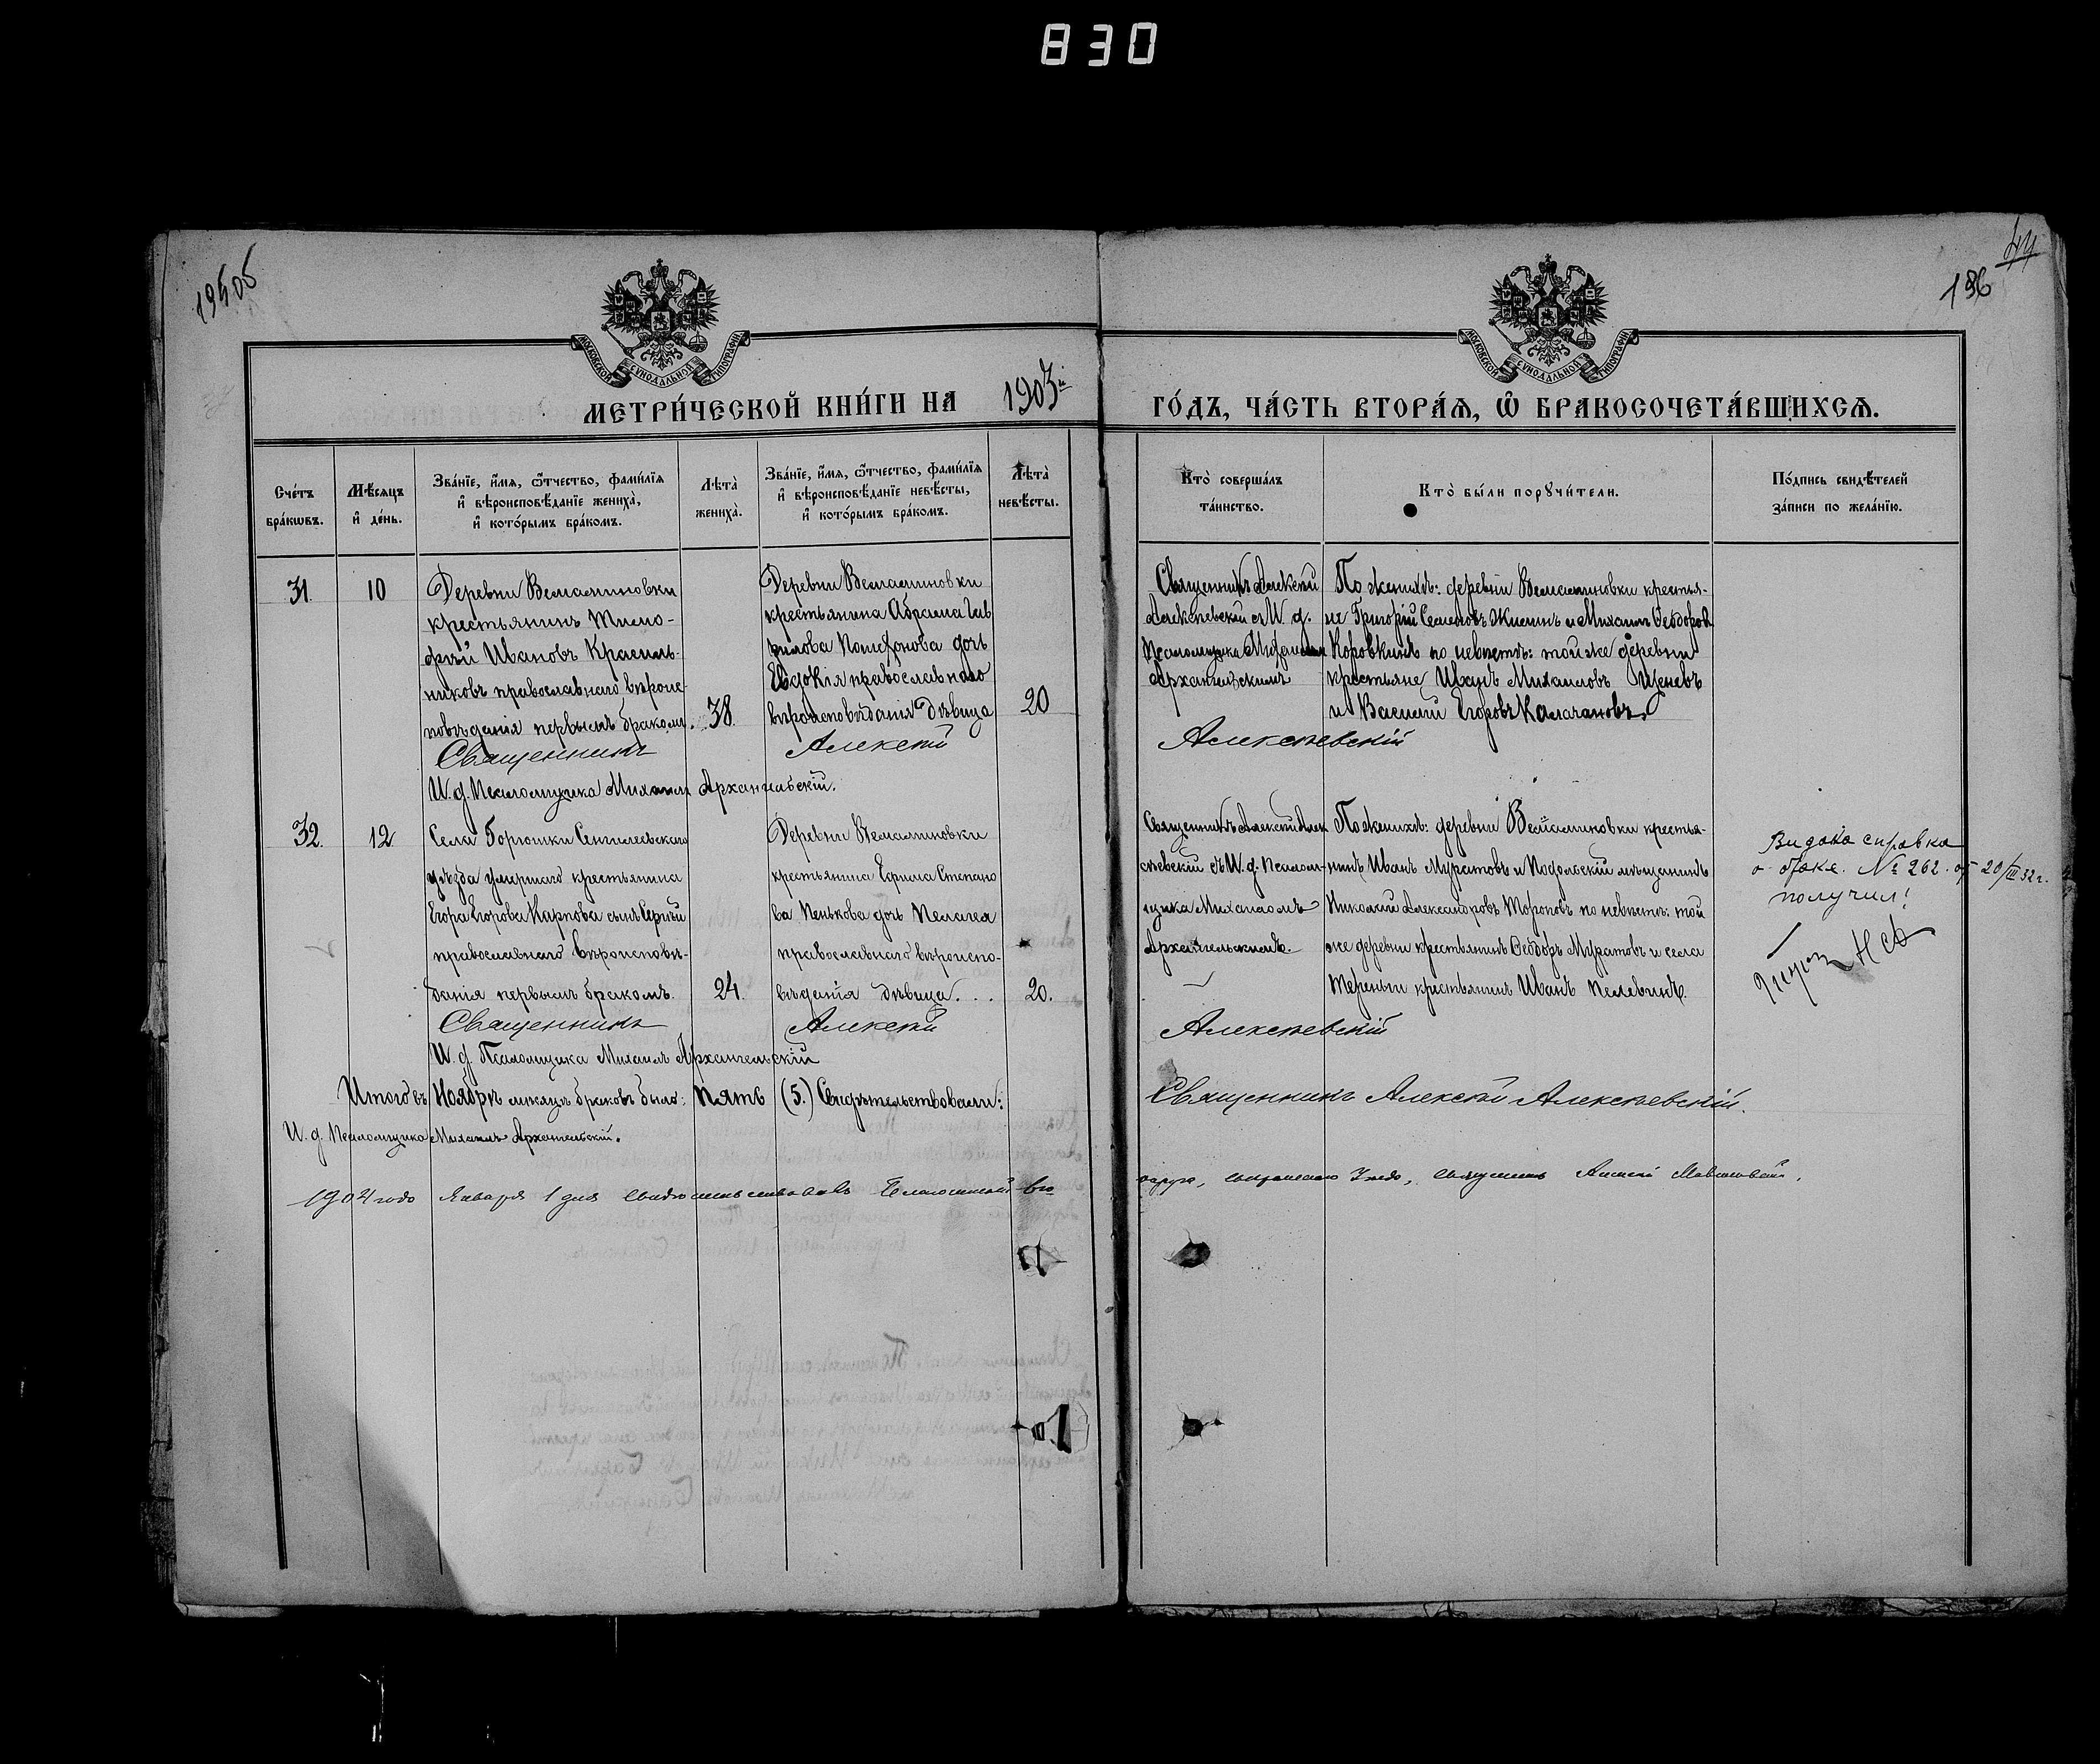 830
44
195об
196
МОСКОВСКОЙ СУНОДАЛЬНОЙ ТИПОГРАФІИ
МОСКОВСКОЙ СУНОДАЛЬНОЙ ТИПОГРАФІИ
МЕТРИ́ЧЕСКОЙ КНИ́ГИ НА 1903й ГО́ДЪ, ЧА́СТЬ ВТОРА́Ѧ, Ѽ БРАКОСОЧЕТА́ВШИХСѦ.
Сче́тъ
бра́кѡвъ.
Мѣ́сѧцъ
и҆ де́нь.
Зва́нїе, и҆́мѧ, ѻ҆́тчество, фами́лїѧ
и҆ вѣроисповѣ́данїе жениха̀,
и҆ кото́рымъ бра́комъ.
Лѣта̀
жениха̀.
Зва́нїе, и҆́мѧ, ѻ҆́тчество, фами́лїѧ
и҆ вѣроисповѣ́данїе невѣ́сты,
и҆ кото́рымъ бра́комъ.
Лѣта̀
невѣ́сты.
Кто̀ соверша́лъ
та́инство.
Кто̀ бы́ли порꙋчи́тели.
По́дпись свидѣ́телей
за́писи по жела́нїю.
31.
10
Деревни Вельяминовки
крестьянинъ Тимо-
фей Ивановъ Красиль-
никовъ православнаго вѣроис-
повѣданія первымъ бракомъ.
38.
Деревни Вельяминовки
крестьянина Абрама Гав
рилова дочь
Евдокія православнаго
вѣроисповѣданія дѣвица
20
Священникъ Алексій
Алексѣевскій съ И. д.
Псаломщика Михаиломъ
Архангельскимъ
По женихѣ: деревни Вельяминовки крестья-
не Григорій Семеновъ Жилинъ и Михаилъ Ѳеодоровъ
Коровкинъ по невѣстѣ: той же деревни
крестьяне Иванъ Михаиловъ
и Василій Егоровъ Калачановъ.
Священникъ Алексій Алексѣевскій
И. д. Псаломщика Михаилъ Архангельскій.
32.
12
Села Горюшки Сенгилеевскаго
уѣзда умершаго крестьянина
Егора Егорова Карпова сынъ Сергѣй
православнаго вѣроисповѣ-
данія первымъ бракомъ.
24.
Деревни Вельяминовки
крестьянина Ефима Степано
ва Пенькова дочь Пелагея
православнаго вѣроиспо-
вѣданія дѣвица...
20.
Священникъ Алексій Алек
сѣевскій съ И. д. Псалом-
щика Михаиломъ
Архангельскимъ.
По женихѣ: деревни Вельяминовки крестья-
нинъ Иванъ Муратовъ и Подольскій мѣщанинъ
Николай Александровъ Тороповъ по невѣстѣ: той
же деревни крестьянинъ Ѳеодоръ Муратовъ и села
Тереньги крестьянинъ Иванъ Пелевинъ.
Выдана справка
о браке. № 262. от 20/III 32 г.
получил!
Священникъ Алексій Алексѣевскій
И. д. Псаломщика Михаилъ Архангельскій
Итого въ Ноябрѣ мѣсяцѣ браковъ было: пять (5.) Свидѣтельствовали: Священникъ Алексій Алексѣевскій.
И. д. Псаломщика Михаилъ Архангельскій.
1904 года Января 1 дня свидѣтельствовалъ округа, священникъ Алексій